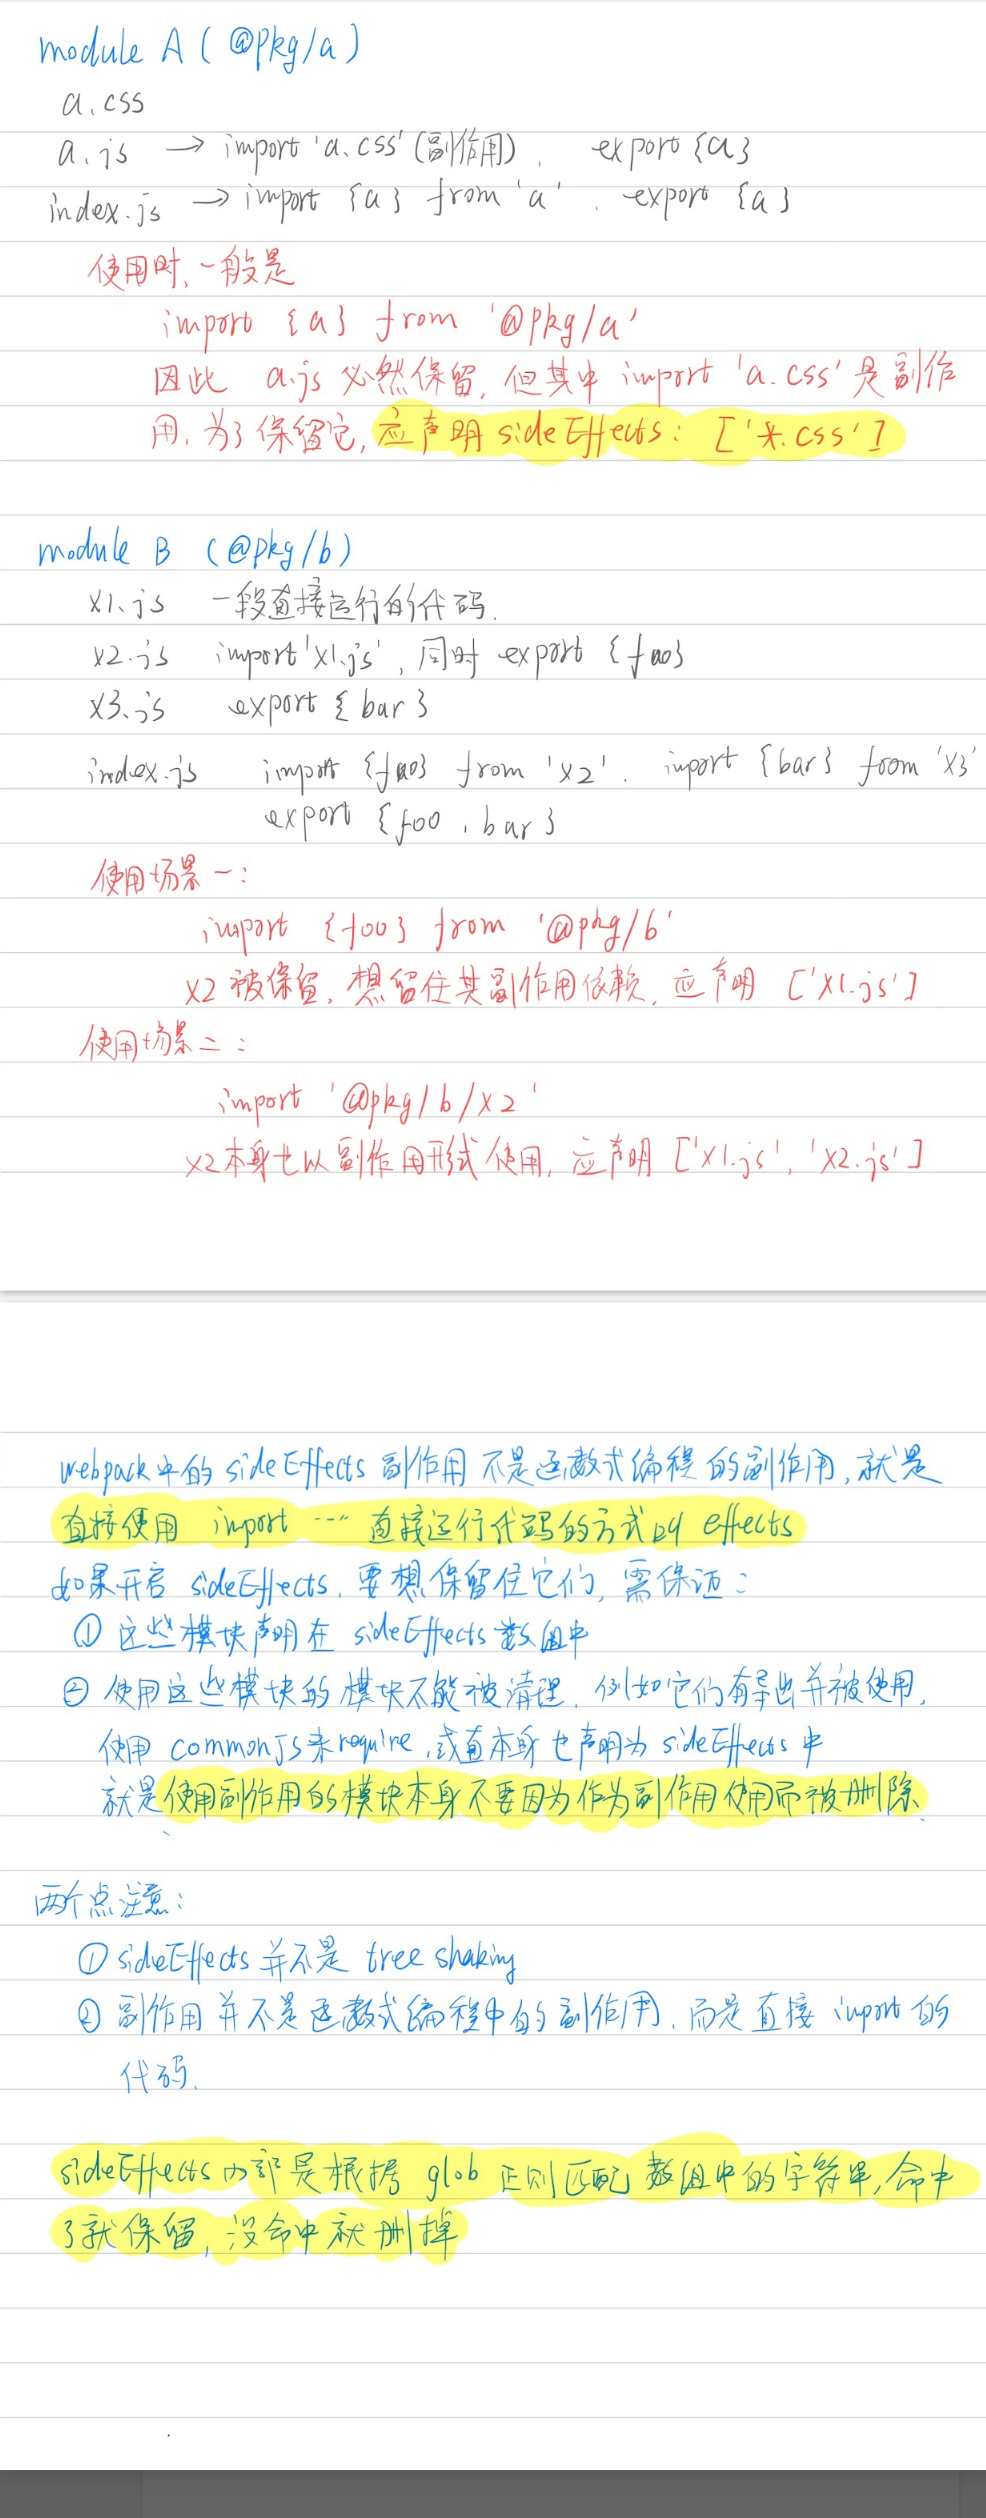 module A ( @pkg/a )
a.css
a.js → import 'a.css' (副作用). export {a}
index.js → import {a} from 'a'. export {a}
使用时, 一般是
import {a} from '@pkg/a'
因此 a.js 必然保留, 但其中 import 'a.css' 是副作
用, 为了保留它, 应声明 sideEffects: ['*.css']
module B (@pkg/b)
x1.js 一段直接运行的代码.
x2.js import 'x1.js', 同时 export {foo}
x3.js export {bar}
index.js import {foo} from 'x2'. import {bar} from 'x3'
export {foo, bar}
使用场景一:
import {foo} from '@pkg/b'
x2 被保留, 想留住其副作用依赖, 应声明 ['x1.js']
使用场景二:
import '@pkg/b/x2'
x2本身也以副作用形式使用, 应声明 ['x1.js', 'x2.js']
webpack中的 sideEffects 副作用不是函数式编程的副作用, 就是
直接使用 import ... 直接运行代码的方式的 effects
如果开启 sideEffects, 要想保留住它们, 需保证:
① 这些模块声明在 sideEffects 数组中
② 使用这些模块的模块不能被清理, 例如它们有导出并被使用,
使用 commonJS 来 require, 或直本身也声明为 sideEffects 中
就是使用副作用的模块本身不要因为作为副作用使用而被删除.
两个点注意:
① sideEffects 并不是 tree shaking
② 副作用并不是函数式编程中的副作用, 而是直接 import 的
代码.
sideEffects 内部是根据 glob 正则匹配数组中的字符串, 命中
了就保留, 没命中就删掉